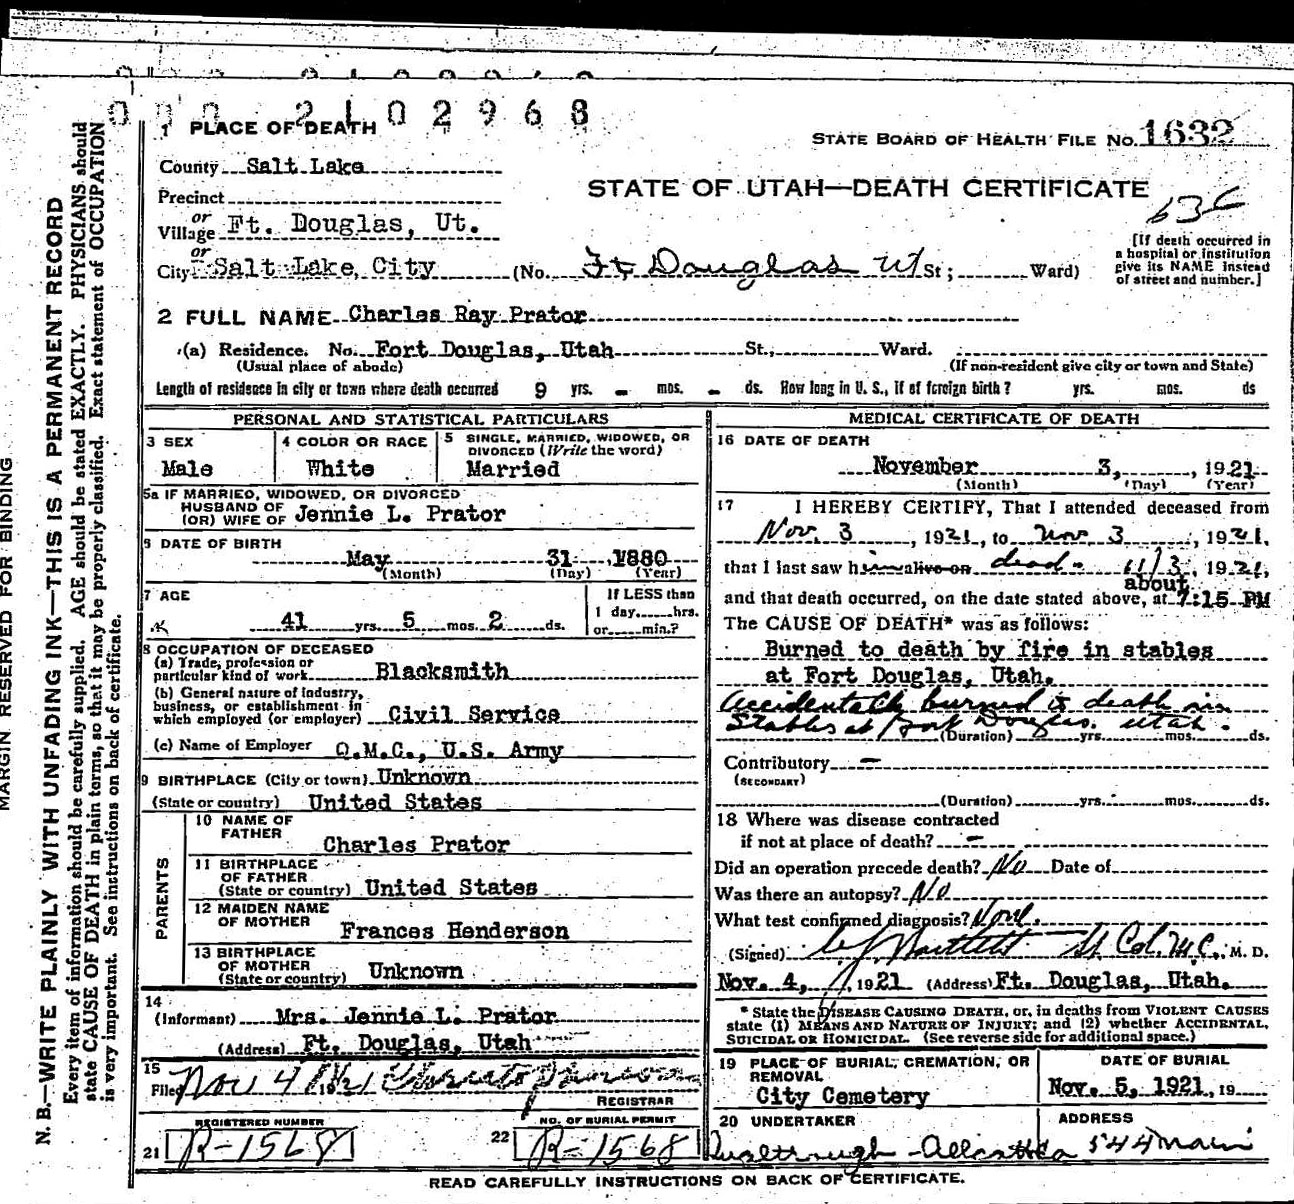 2102968
1 PLACE OF DEATH
STATE BOARD OF HEALTH FILE No. 1632
County Salt Lake
STATE OF UTAH—DEATH CERTIFICATE
Precinct
or
Village Ft. Douglas, Ut.
or
City Salt Lake City (No. Ft Douglas Ut St; Ward)
[If death occurred in
a hospital or institution
give its NAME instead
of street and number.]
2 FULL NAME Charles Ray Prator
(a) Residence. No. Fort Douglas, Utah St., Ward.
(Usual place of abode) (If non-resident give city or town and State)
Length of residence in city or town where death occurred 9 yrs. - mos. - ds. How long in U. S., if of foreign birth? yrs. mos. ds
PERSONAL AND STATISTICAL PARTICULARS
3 SEX
Male
4 COLOR OR RACE
White
5 SINGLE, MARRIED, WIDOWED, OR
DIVORCED (Write the word)
Married
5a IF MARRIED, WIDOWED, OR DIVORCED
HUSBAND OF
(OR) WIFE OF Jennie L. Prator
6 DATE OF BIRTH
May 31 1880
(Month) (Day) (Year)
7 AGE
41 yrs. 5 mos. 2 ds.
If LESS than
1 day, hrs.
or min.?
8 OCCUPATION OF DECEASED
(a) Trade, profession or
particular kind of work Blacksmith
(b) General nature of industry,
business, or establishment in
which employed (or employer) Civil Service
(c) Name of Employer Q.M.C., U.S. Army
9 BIRTHPLACE (City or town) Unknown
(State or country) United States
PARENTS
10 NAME OF
FATHER
Charles Prator
11 BIRTHPLACE
OF FATHER
(State or country) United States
12 MAIDEN NAME
OF MOTHER
Frances Henderson
13 BIRTHPLACE
OF MOTHER
(State or country) Unknown
14
(Informant) Mrs. Jennie L. Prator
(Address) Ft. Douglas, Utah
15
Filed Nov 4 1921
REGISTRAR
REGISTERED NUMBER
21 R-1568
NO. OF BURIAL PERMIT
22 R-1568
MEDICAL CERTIFICATE OF DEATH
16 DATE OF DEATH
November 3, 1921
(Month) (Day) (Year)
17 I HEREBY CERTIFY, That I attended deceased from
Nov. 3, 1921, to Nov. 3, 1921,
that I last saw him alive on dead - 11/3, 1921,
about
and that death occurred, on the date stated above, at 7:15 PM
The CAUSE OF DEATH* was as follows:
Burned to death by fire in stables
at Fort Douglas, Utah.
Accidentally burned to death in
Stables at Fort Douglas, Utah.
(Duration) yrs. mos. ds.
Contributory -
(SECONDARY)
(Duration) yrs. mos. ds.
18 Where was disease contracted
if not at place of death? -
Did an operation precede death? No Date of
Was there an autopsy? No
What test confirmed diagnosis? None.
(Signed) Bartlett Lt Col. M.C., M. D.
Nov. 4, 1921 (Address) Ft. Douglas, Utah.
* State the DISEASE CAUSING DEATH, or, in deaths from VIOLENT CAUSES
state (1) MEANS AND NATURE OF INJURY; and (2) whether ACCIDENTAL,
SUICIDAL OR HOMICIDAL. (See reverse side for additional space.)
19 PLACE OF BURIAL, CREMATION, OR
REMOVAL
City Cemetery
DATE OF BURIAL
Nov. 5, 1921, 19
20 UNDERTAKER
ADDRESS
544 Main
READ CAREFULLY INSTRUCTIONS ON BACK OF CERTIFICATE.
MARGIN RESERVED FOR BINDING
N. B.—WRITE PLAINLY WITH UNFADING INK—THIS IS A PERMANENT RECORD
Every item of information should be carefully supplied. AGE should be stated EXACTLY. PHYSICIANS should
state CAUSE OF DEATH in plain terms, so that it may be properly classified. Exact statement of OCCUPATION
is very important. See instructions on back of certificate.